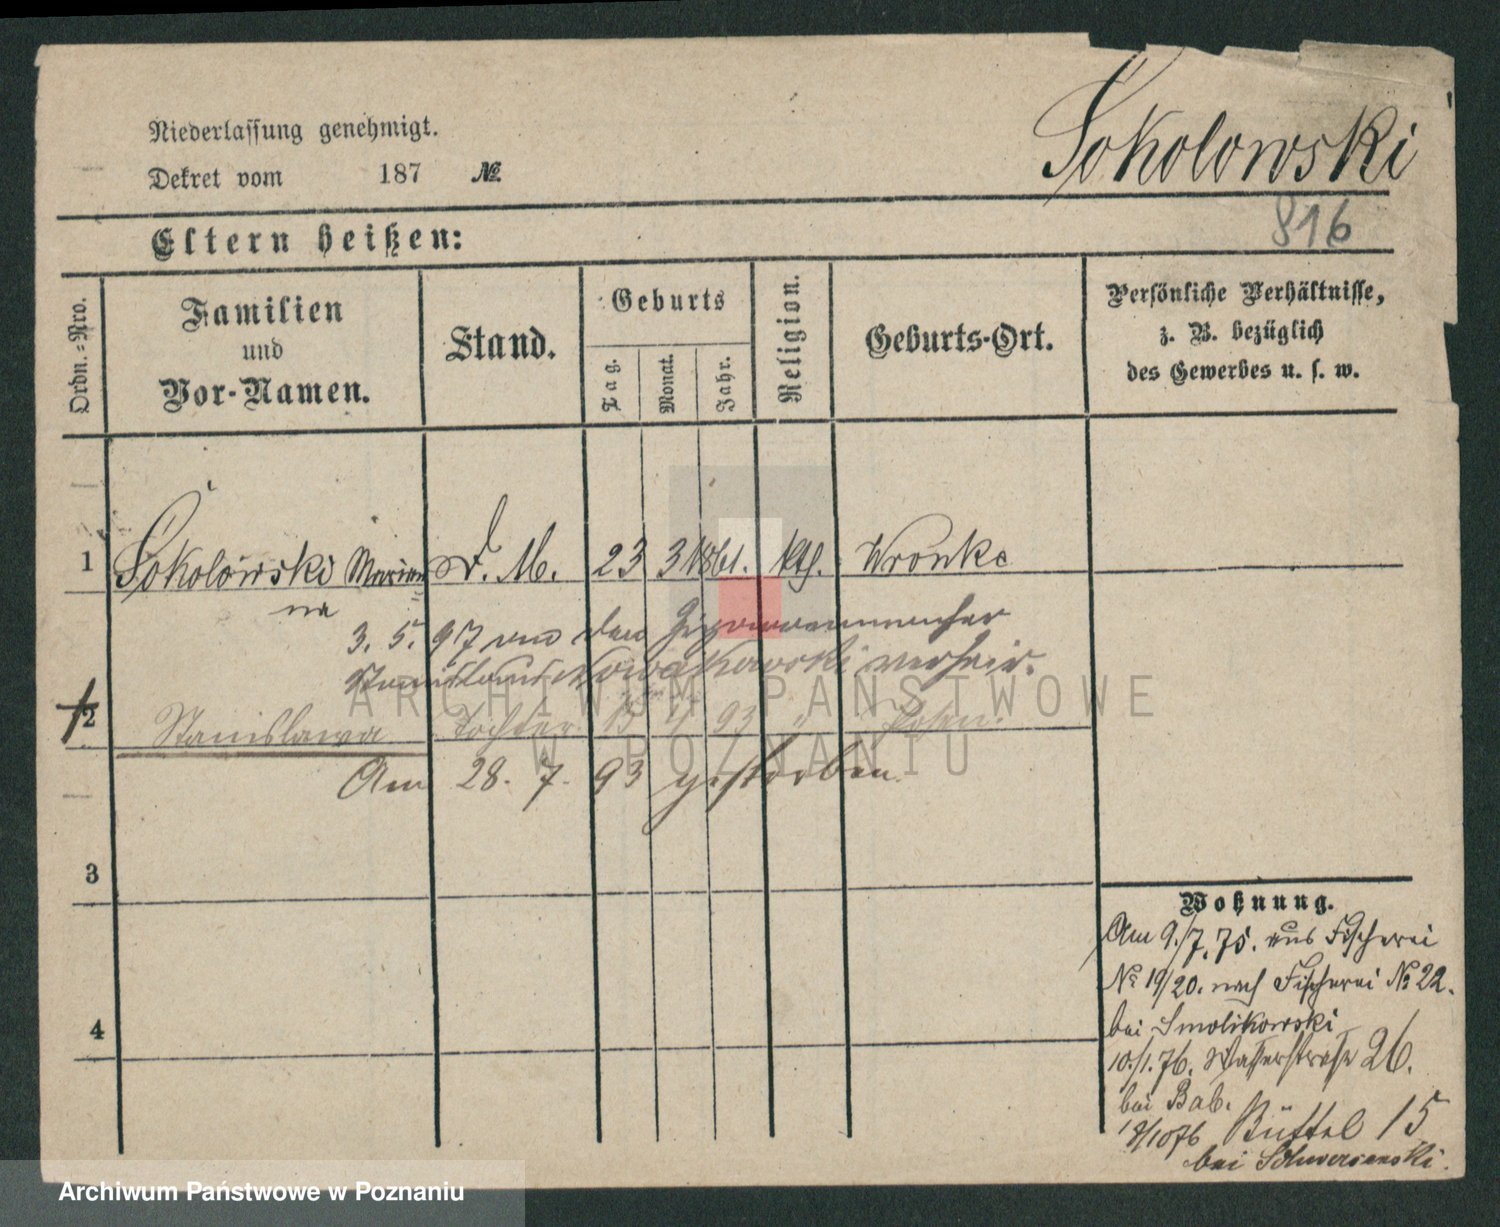 Sokolowski
Niederlassung genehmigt.
Dekret vom 187 №
816
Eltern heißen:
Ordn.-Nro.
Familien
und
Vor-Namen.
Stand.
Geburts
Tag.
Monat.
Jahr.
Religion.
Geburts-Ort.
Persönliche Verhältnisse,
z. B. bezüglich
des Gewerbes u. s. w.
1 Sokolowski Marian D. M. 23 3 1861. kth. Wronke
na
3. 5. 97 mit dem
Nowakowski verheir.
2 Stanislawa Tochter 93 Posen.
Am 28. 7. 93 gestorben
3
4
Wohnung.
Am 9./7. 75. aus Fischerei
№ 19/20. nach Fischerei № 22.
bei Smolikowski
10./1. 76. Wasserstraße 26.
bei Bab.
18/10 76 Büttel 15
bei Schwersenski.
ARCHIWUM PAŃSTWOWE
W POZNANIU
Archiwum Państwowe w Poznaniu